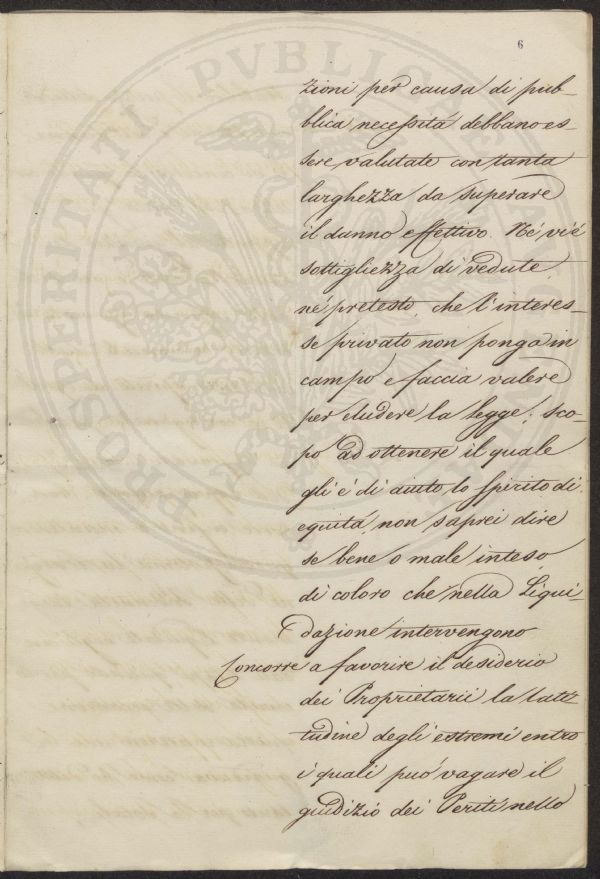 6
zioni per causa di pub-
blica necessitá debbano es-
sere valutate con tanta
larghezza da superare
il danno effettivo. Né vi é
sottigliezza di vedute,
né pretesto, che l'interes-
se privato non ponga in
campo e faccia valere
per eludere la legge; sco-
po ad ottenere il quale
gli é di aiuto lo spirito di
equitá, non saprei dire
se bene o male inteso,
di coloro che nella Liqui-
dazione intervengono
Concorre a favorire il desiderio
dei Proprietarii la lati-
tudine degli estremi entro
i quali puó vagare il
giudizio dei Periti nello
PROSPERITATI PVBLICAE